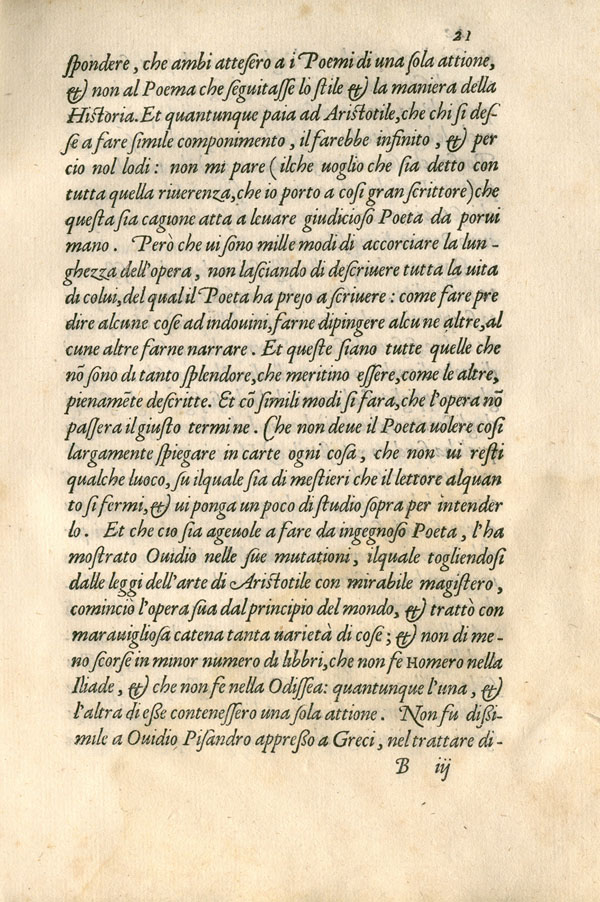 21
ſpondere, che ambi atteſero a i Poemi di una ſola attione,
& non al Poema che ſeguitaſſe lo ſtile & la maniera della
Hiſtoria. Et quantunque paia ad Ariſtotile, che chi ſi deſ-
ſe a fare ſimile componimento, il farebbe infinito, & per
cio nol lodi: non mi pare (ilche uoglio che ſia detto con
tutta quella riuerenza, che io porto a coſi gran ſcrittore) che
queſta ſia cagione atta a leuare giudicioſo Poeta da porui
mano. Però che ui ſono mille modi di accorciare la lun-
ghezza dell'opera, non laſciando di deſcriuere tutta la uita
di colui, del qual il Poeta ha preſo a ſcriuere: come fare pre
dire alcune coſe ad indouini, farne dipingere alcune altre, al
cune altre farne narrare. Et queſte ſiano tutte quelle che
nõ ſono di tanto ſplendore, che meritino eſſere, come le altre,
pienamẽte deſcritte. Et cõ ſimili modi ſi fara, che l'opera nõ
paſſera il giuſto termine. Che non deue il Poeta uolere coſi
largamente ſpiegare in carte ogni coſa, che non ui reſti
qualche luoco, su ilquale ſia di meſtieri che il lettore alquan
to ſi fermi, & ui ponga un poco di ſtudio ſopra per intender
lo. Et che cio ſia ageuole a fare da ingegnoſo Poeta, l'ha
moſtrato Ouidio nelle ſue mutationi, ilquale togliendoſi
dalle leggi dell'arte di Ariſtotile con mirabile magiſtero,
cominciò l'opera ſua dal principio del mondo, & trattò con
marauiglioſa catena tanta uarietà di coſe; & non di me-
no ſcorſe in minor numero di libbri, che non fe Homero nella
Iliade, & che non fe nella Odiſſea: quantunque l'una, &
l'altra di eſſe conteneſſero una ſola attione. Non fu diſſi-
mile a Ouidio Piſandro appreſſo a Greci, nel trattare di-
B iij